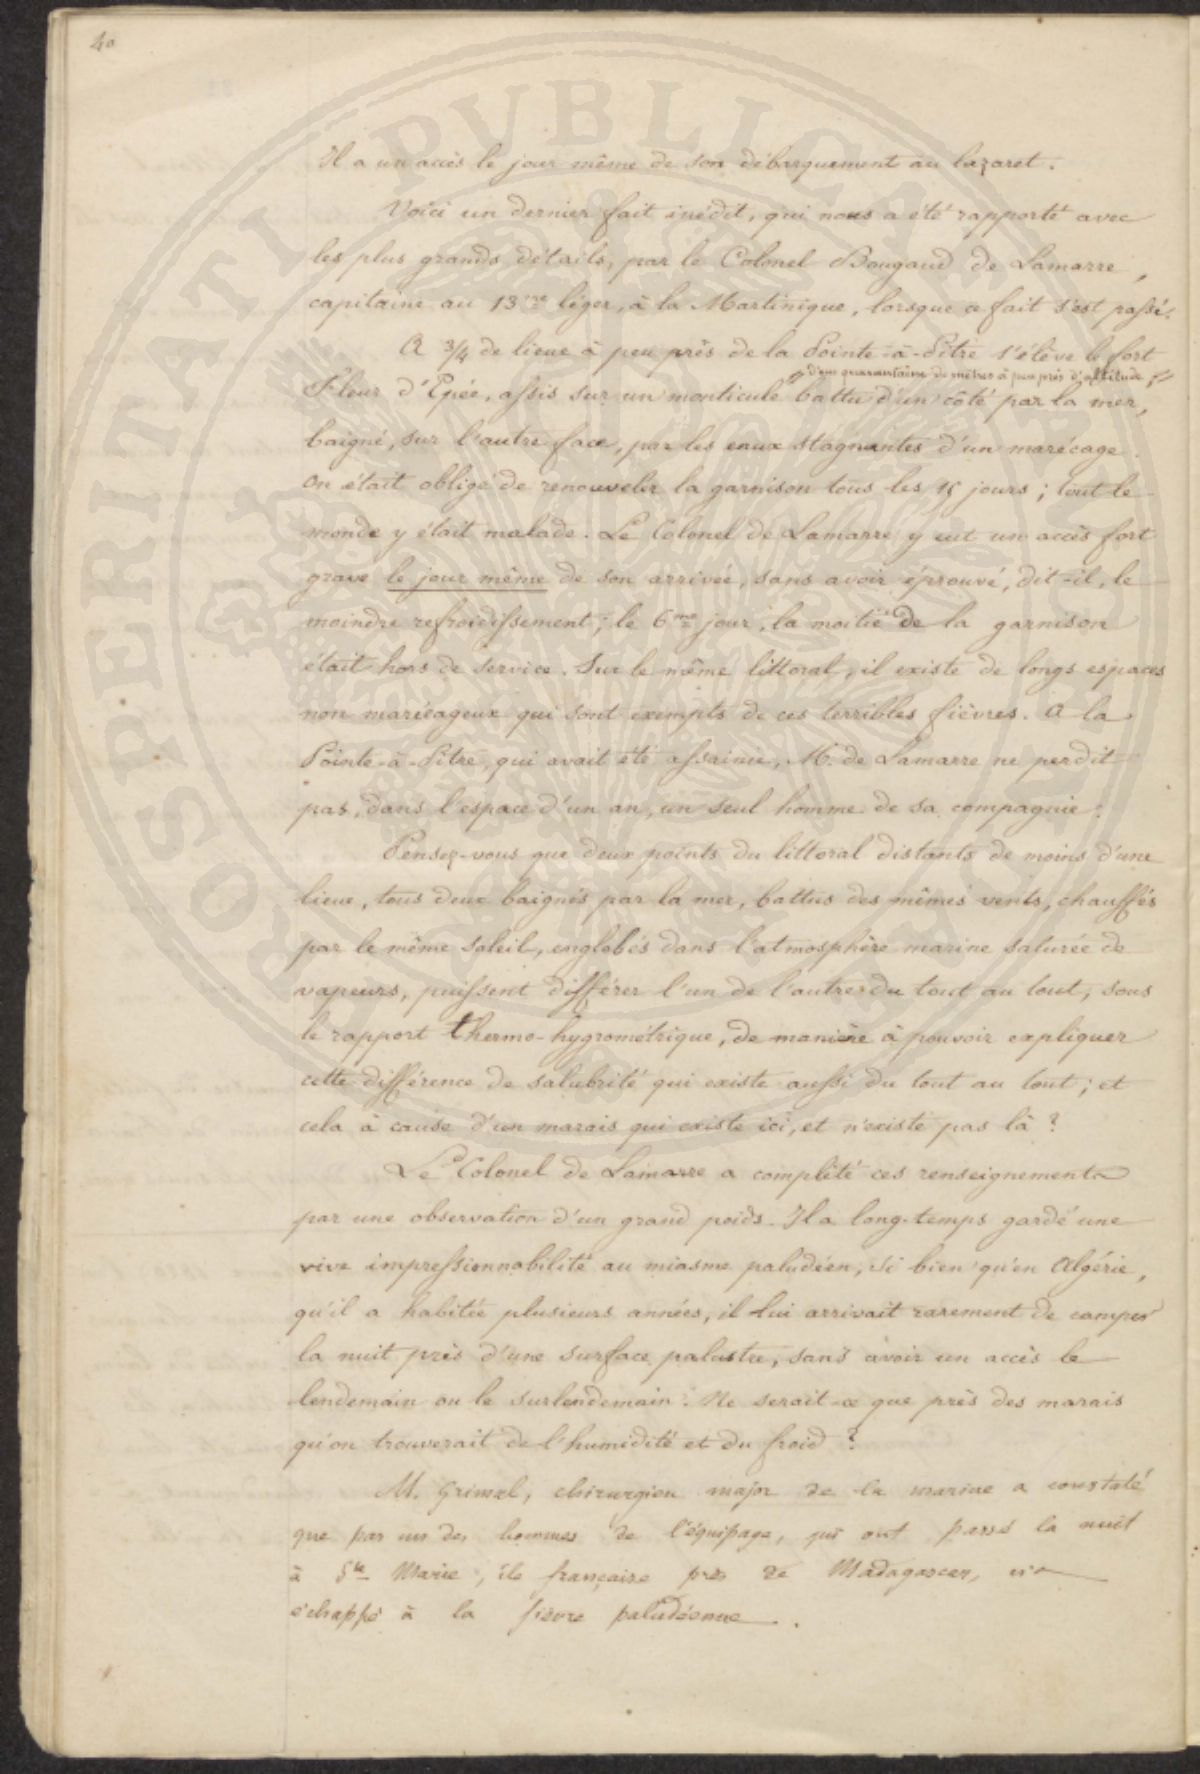 40
Il a un accès le jour même de son débarquement au lazaret.
Voici un dernier fait inédit, qui nous a été rapporté avec
les plus grands détails, par le Colonel Bougaud de Lamarre,
capitaine au 13me léger, à la Martinique, lorsque ce fait s'est passé.
A 3/4 de lieue à peu près de la Pointe-à-Pitre s'élève le fort
d'une quarantaine de mètres à peu près d'altitude,
Fleur d'Epée, assis sur un monticule battu d'un côté par la mer,
baigné, sur l'autre face, par les eaux stagnantes d'un marécage.
On était obligé de renouveler la garnison tous les 15 jours ; tout le
monde y était malade. Le Colonel de Lamarre y eut un accès fort
grave le jour même de son arrivée, sans avoir éprouvé, dit-il, le
moindre refroidissement ; le 6me jour, la moitié de la garnison
était hors de service. Sur le même littoral, il existe de longs espaces
non marécageux qui sont exempts de ces terribles fièvres. A la
Pointe-à-Pitre, qui avait été assainie, M. de Lamarre ne perdit
pas, dans l'espace d'un an, un seul homme de sa compagnie.
Pensez-vous que deux points du littoral distants de moins d'une
lieue, tous deux baignés par la mer, battus des mêmes vents, chauffés
par le même soleil, englobés dans l'atmosphère marine saturée de
vapeurs, puissent différer l'un de l'autre du tout au tout, sous
le rapport thermo-hygrométrique, de manière à pouvoir expliquer
cette différence de salubrité qui existe aussi du tout au tout ; et
cela à cause d'un marais qui existe ici, et n'existe pas là ?
Le Colonel de Lamarre a complété ces renseignements
par une observation d'un grand poids. Il a long-temps gardé une
vive impressionnabilité au miasme paludéen, si bien qu'en Algérie,
qu'il a habitée plusieurs années, il lui arrivait rarement de camper
la nuit près d'une surface palustre, sans avoir un accès le
lendemain ou le surlendemain. Ne serait-ce que près des marais
qu'on trouverait de l'humidité et du froid ?
M. Grimal, chirurgien major de la marine a constaté
que pas un des hommes de l'équipage, qui ont passé la nuit
à Ste Marie, île française près de Madagascar, n'a
échappé à la fièvre paludéenne.
PROSPERITATI PUBLICAE